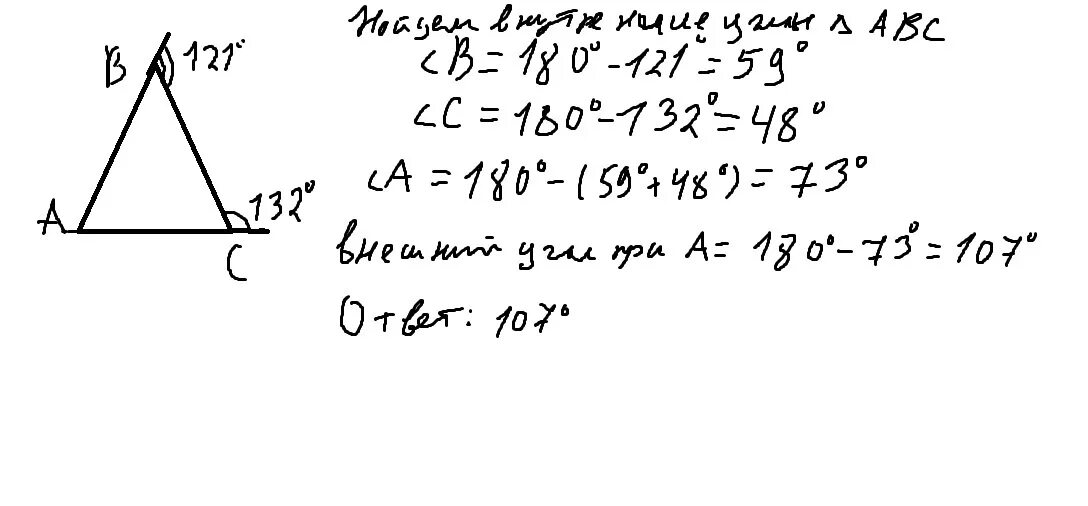 Найдем внутренние углы Δ ABC
B 121°
∠B = 180° - 121° = 59°
∠C = 180° - 132° = 48°
∠A = 180° - (59° + 48°) = 73°
A 132°
C
внешний угол при A = 180° - 73° = 107°
Ответ: 107°